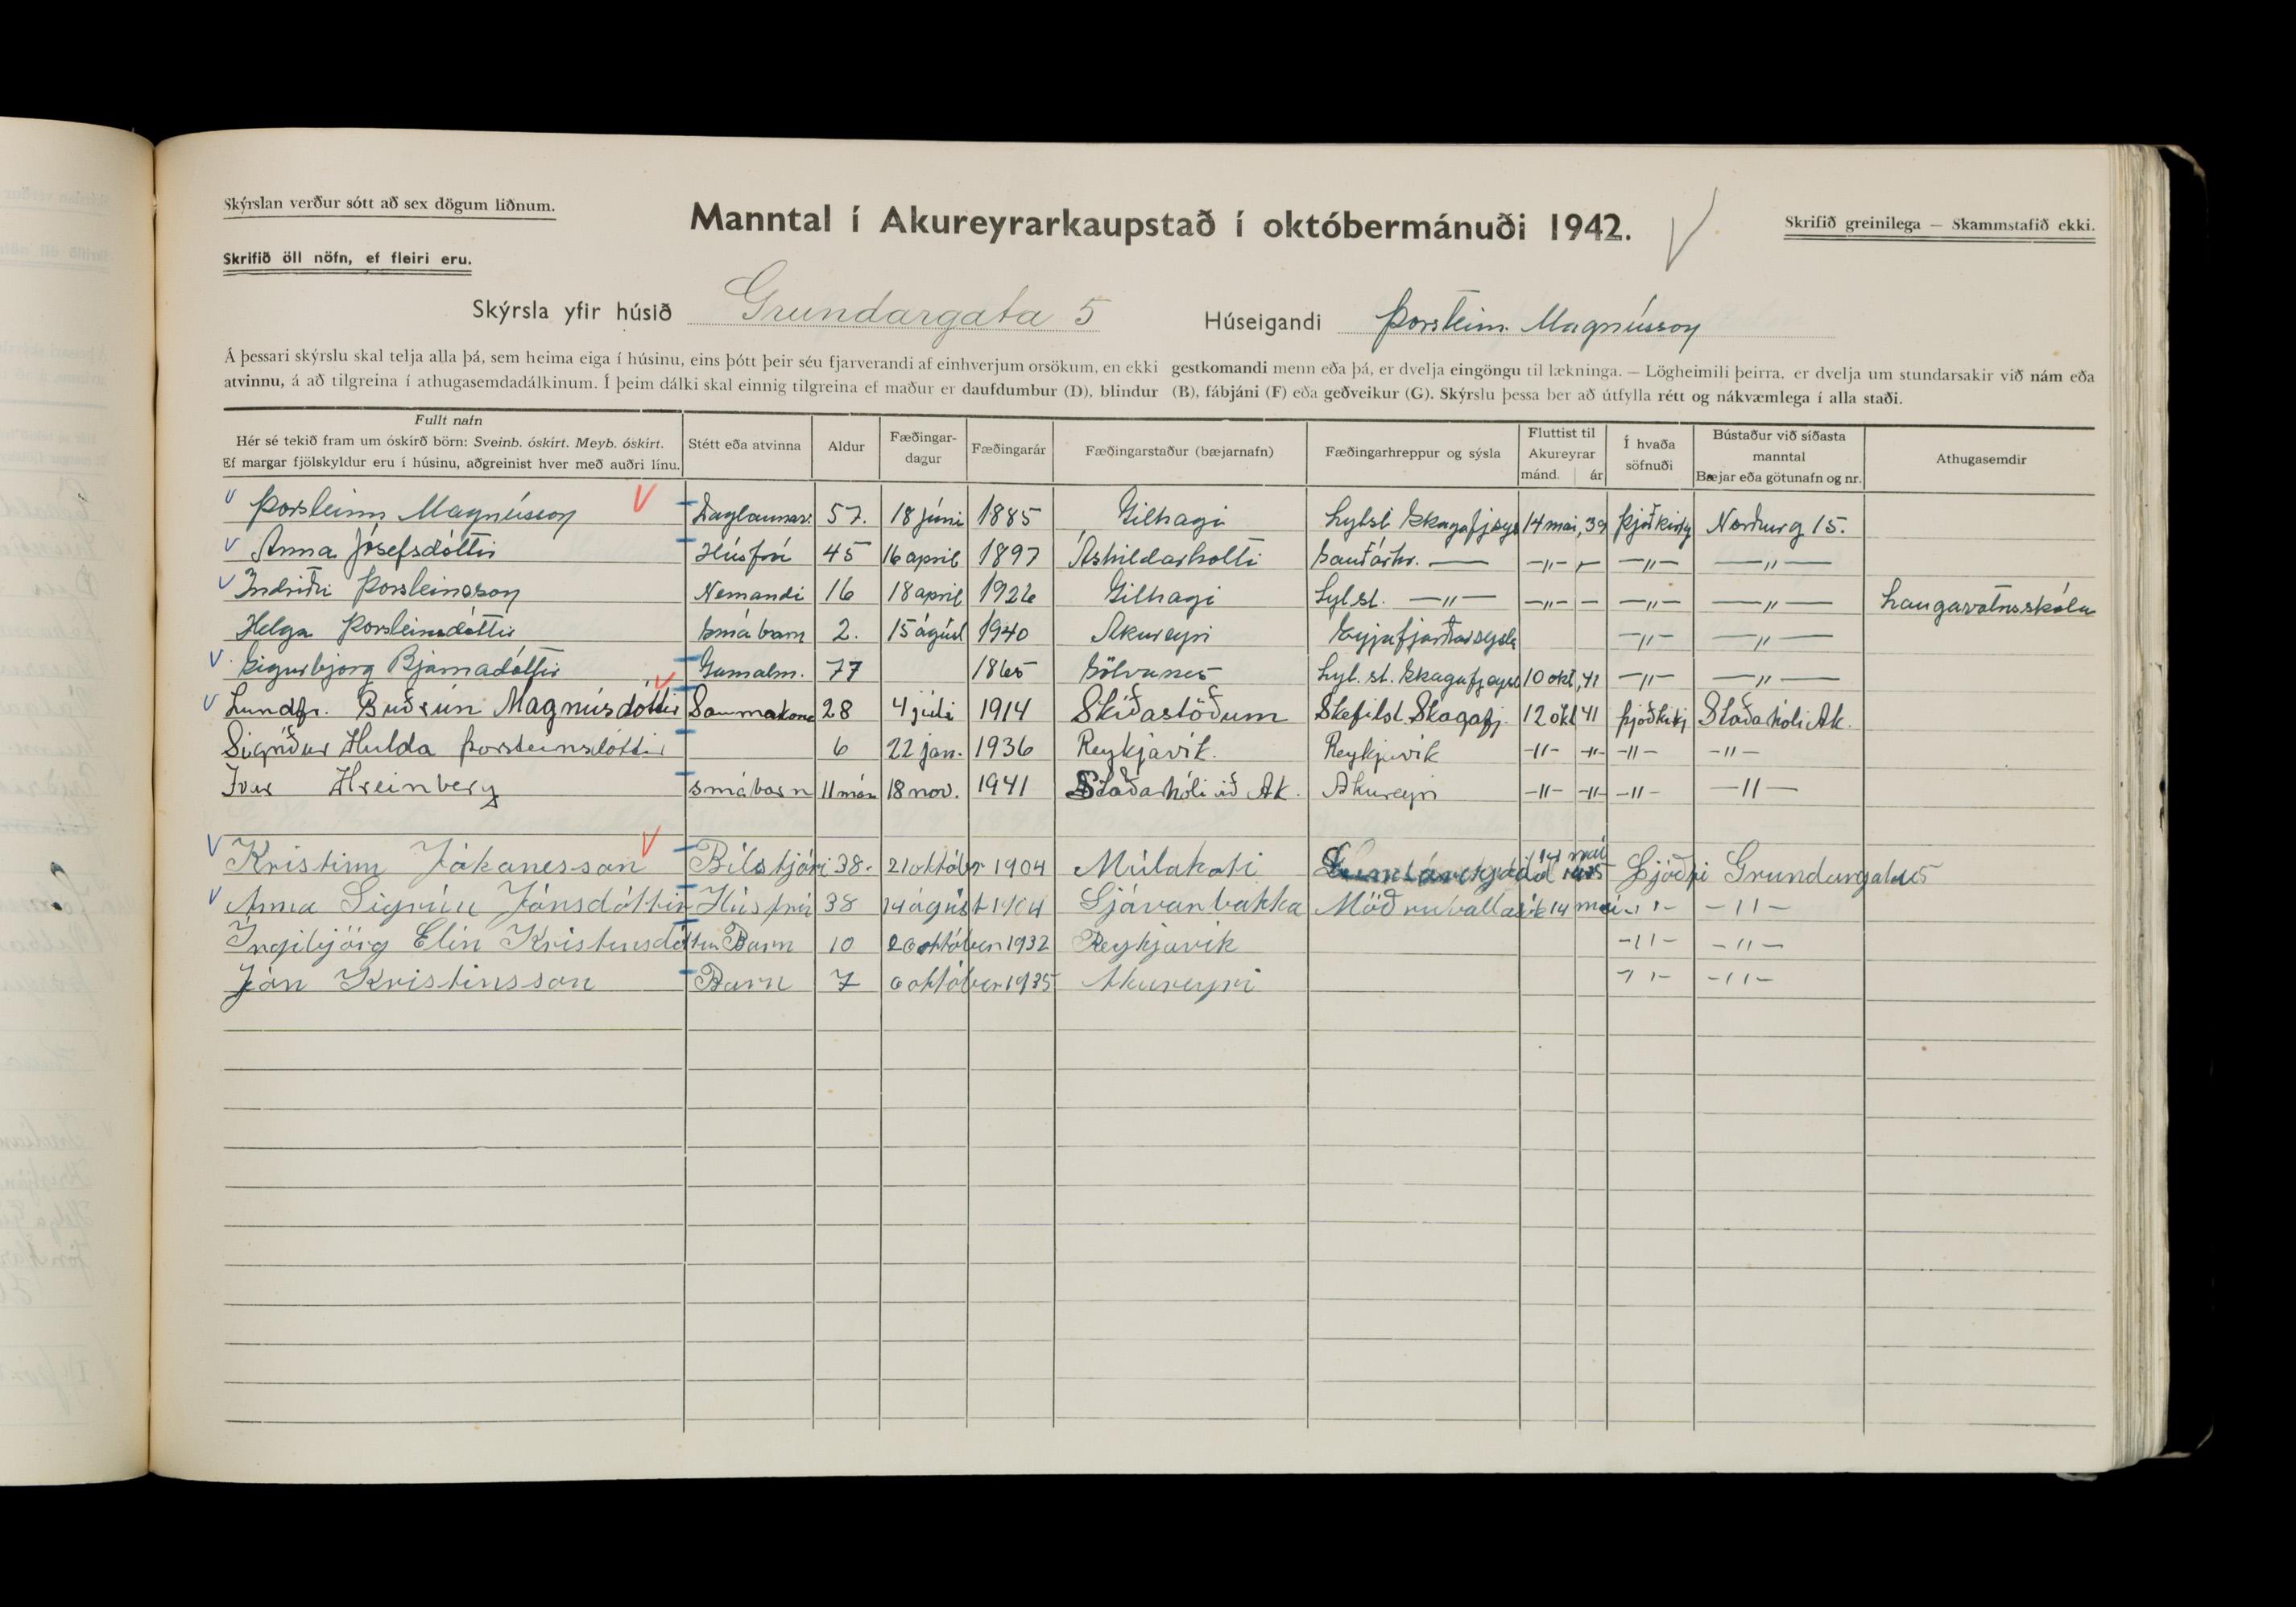 Skýrslan verður sótt að sex dögum liðnum.
Manntal í Akureyrarkaupstað í októbermánuði 1942.
Skrifið greinilega — Skammstafið ekki.
Skrifið öll nöfn, ef fleiri eru.
Skýrsla yfir húsið Grundargata 5 Húseigandi Þorsteinn Magnússon
Á þessari skýrslu skal telja alla þá, sem heima eiga í húsinu, eins þótt þeir séu fjarverandi af einhverjum orsökum, en ekki gestkomandi menn eða þá, er dvelja eingöngu til lækninga. — Lögheimili þeirra, er dvelja um stundarsakir við nám eða
atvinnu, á að tilgreina í athugasemdadálkinum. Í þeim dálki skal einnig tilgreina ef maður er daufdumbur (D), blindur (B), fábjáni (F) eða geðveikur (G). Skýrslu þessa ber að útfylla rétt og nákvæmlega í alla staði.
Fullt nafn
Hér sé tekið fram um óskírð börn: Sveinb. óskírt. Meyb. óskírt.
Ef margar fjölskyldur eru í húsinu, aðgreinist hver með auðri línu.
Stétt eða atvinna
Aldur
Fæðingar-
dagur
Fæðingarár
Fæðingarstaður (bæjarnafn)
Fæðingarhreppur og sýsla
Fluttist til
Akureyrar
mánd. ár
Í hvaða
söfnuði
Bústaður við síðasta
manntal
Bæjar eða götunafn og nr.
Athugasemdir
Þorsteinn Magnússon Daglaunam. 57. 18 júni 1885 Gilhagi Lytst Skagafjays 14 mai, 39 Þjóðkirkj Norðurg 15.
Anna Jósefsdóttir Húsfrú 45 16 april 1897 Áshildarholti Sauðárhr. — -"- -"- —"—
Indriði Þorsteinsson Nemandi 16 18 april 1926 Gilhagi Lyt.st. —"— -"- — -"- —"— Laugavatnsskóla
Helga Þorsteinsdóttir Smábarn 2. 15 ágúst 1940 Akureyri Eyjafjarðarsysla -"- —"—
Sigurbjorg Bjarnadóttir Gamalm. 77 1865 Sölvanes Lyt. st. Skagafjays 10 okt, 41 -"- —"—
Lundfr. Guðrún Magnúsdóttir Saumakona 28 4 júli 1914 Skíðastöðum Skefilst. Skagafj. 12 okt 41 Þjóðkikj Staðarhóli Ak.
Sigríður Hulda Þorsteinsdóttir 6 22 jan. 1936 Reykjavík. Reykjavík -"- -"- -"- -"-
Ivar Hreinberg smábarn 11 mán 18 nov. 1941 Staðarhóli við Ak. Akureyri -"- -"- -"- -"-
Kristinn Jóhanesson Bílstjóri 38. 21 október 1904 Múlakoti 14 mai Grundargata 5
Anna Sigrún Jónsdóttir Húsfrú 38 14 ágúst 1904 Sjávarbakka 14 mai -"- -"-
Ingibjörg Elín Kristinsdóttir Barn 10 október 1932 Reykjavík -"- -"-
Jón Kristinsson Barn 7 6 október 1935 Akureyri -"- -"-